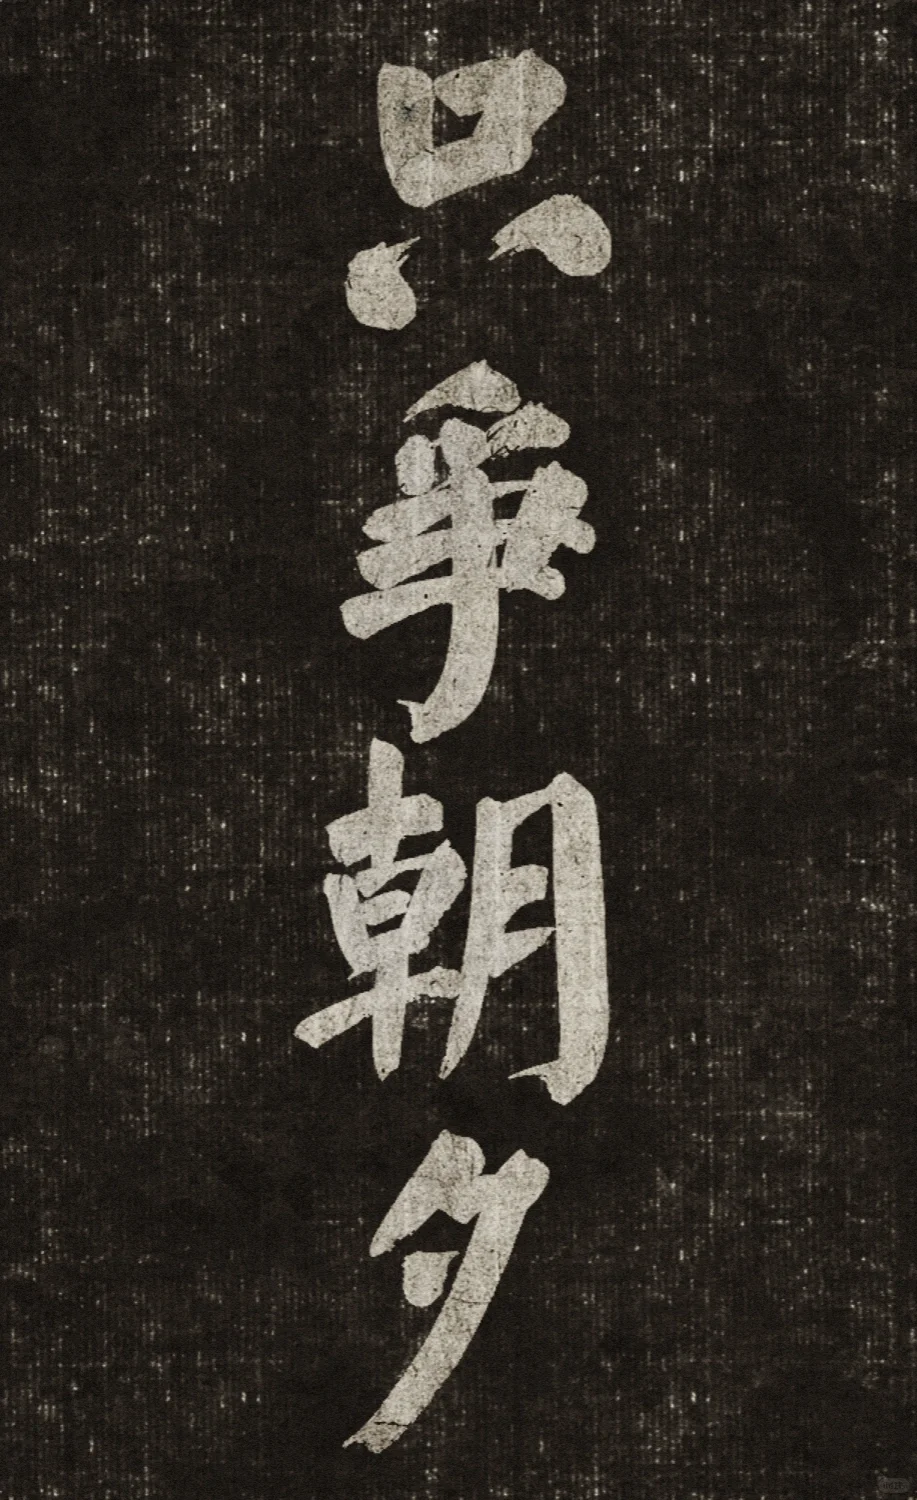 只爭朝夕